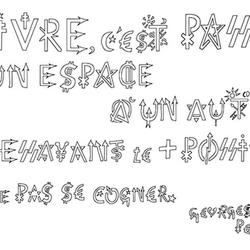 IVRE, C'EST PASS
UN ESPACE
À UN AUT
ESSAYANT LE + POSSI
E PAS SE COGNER.
GEORGES
PE